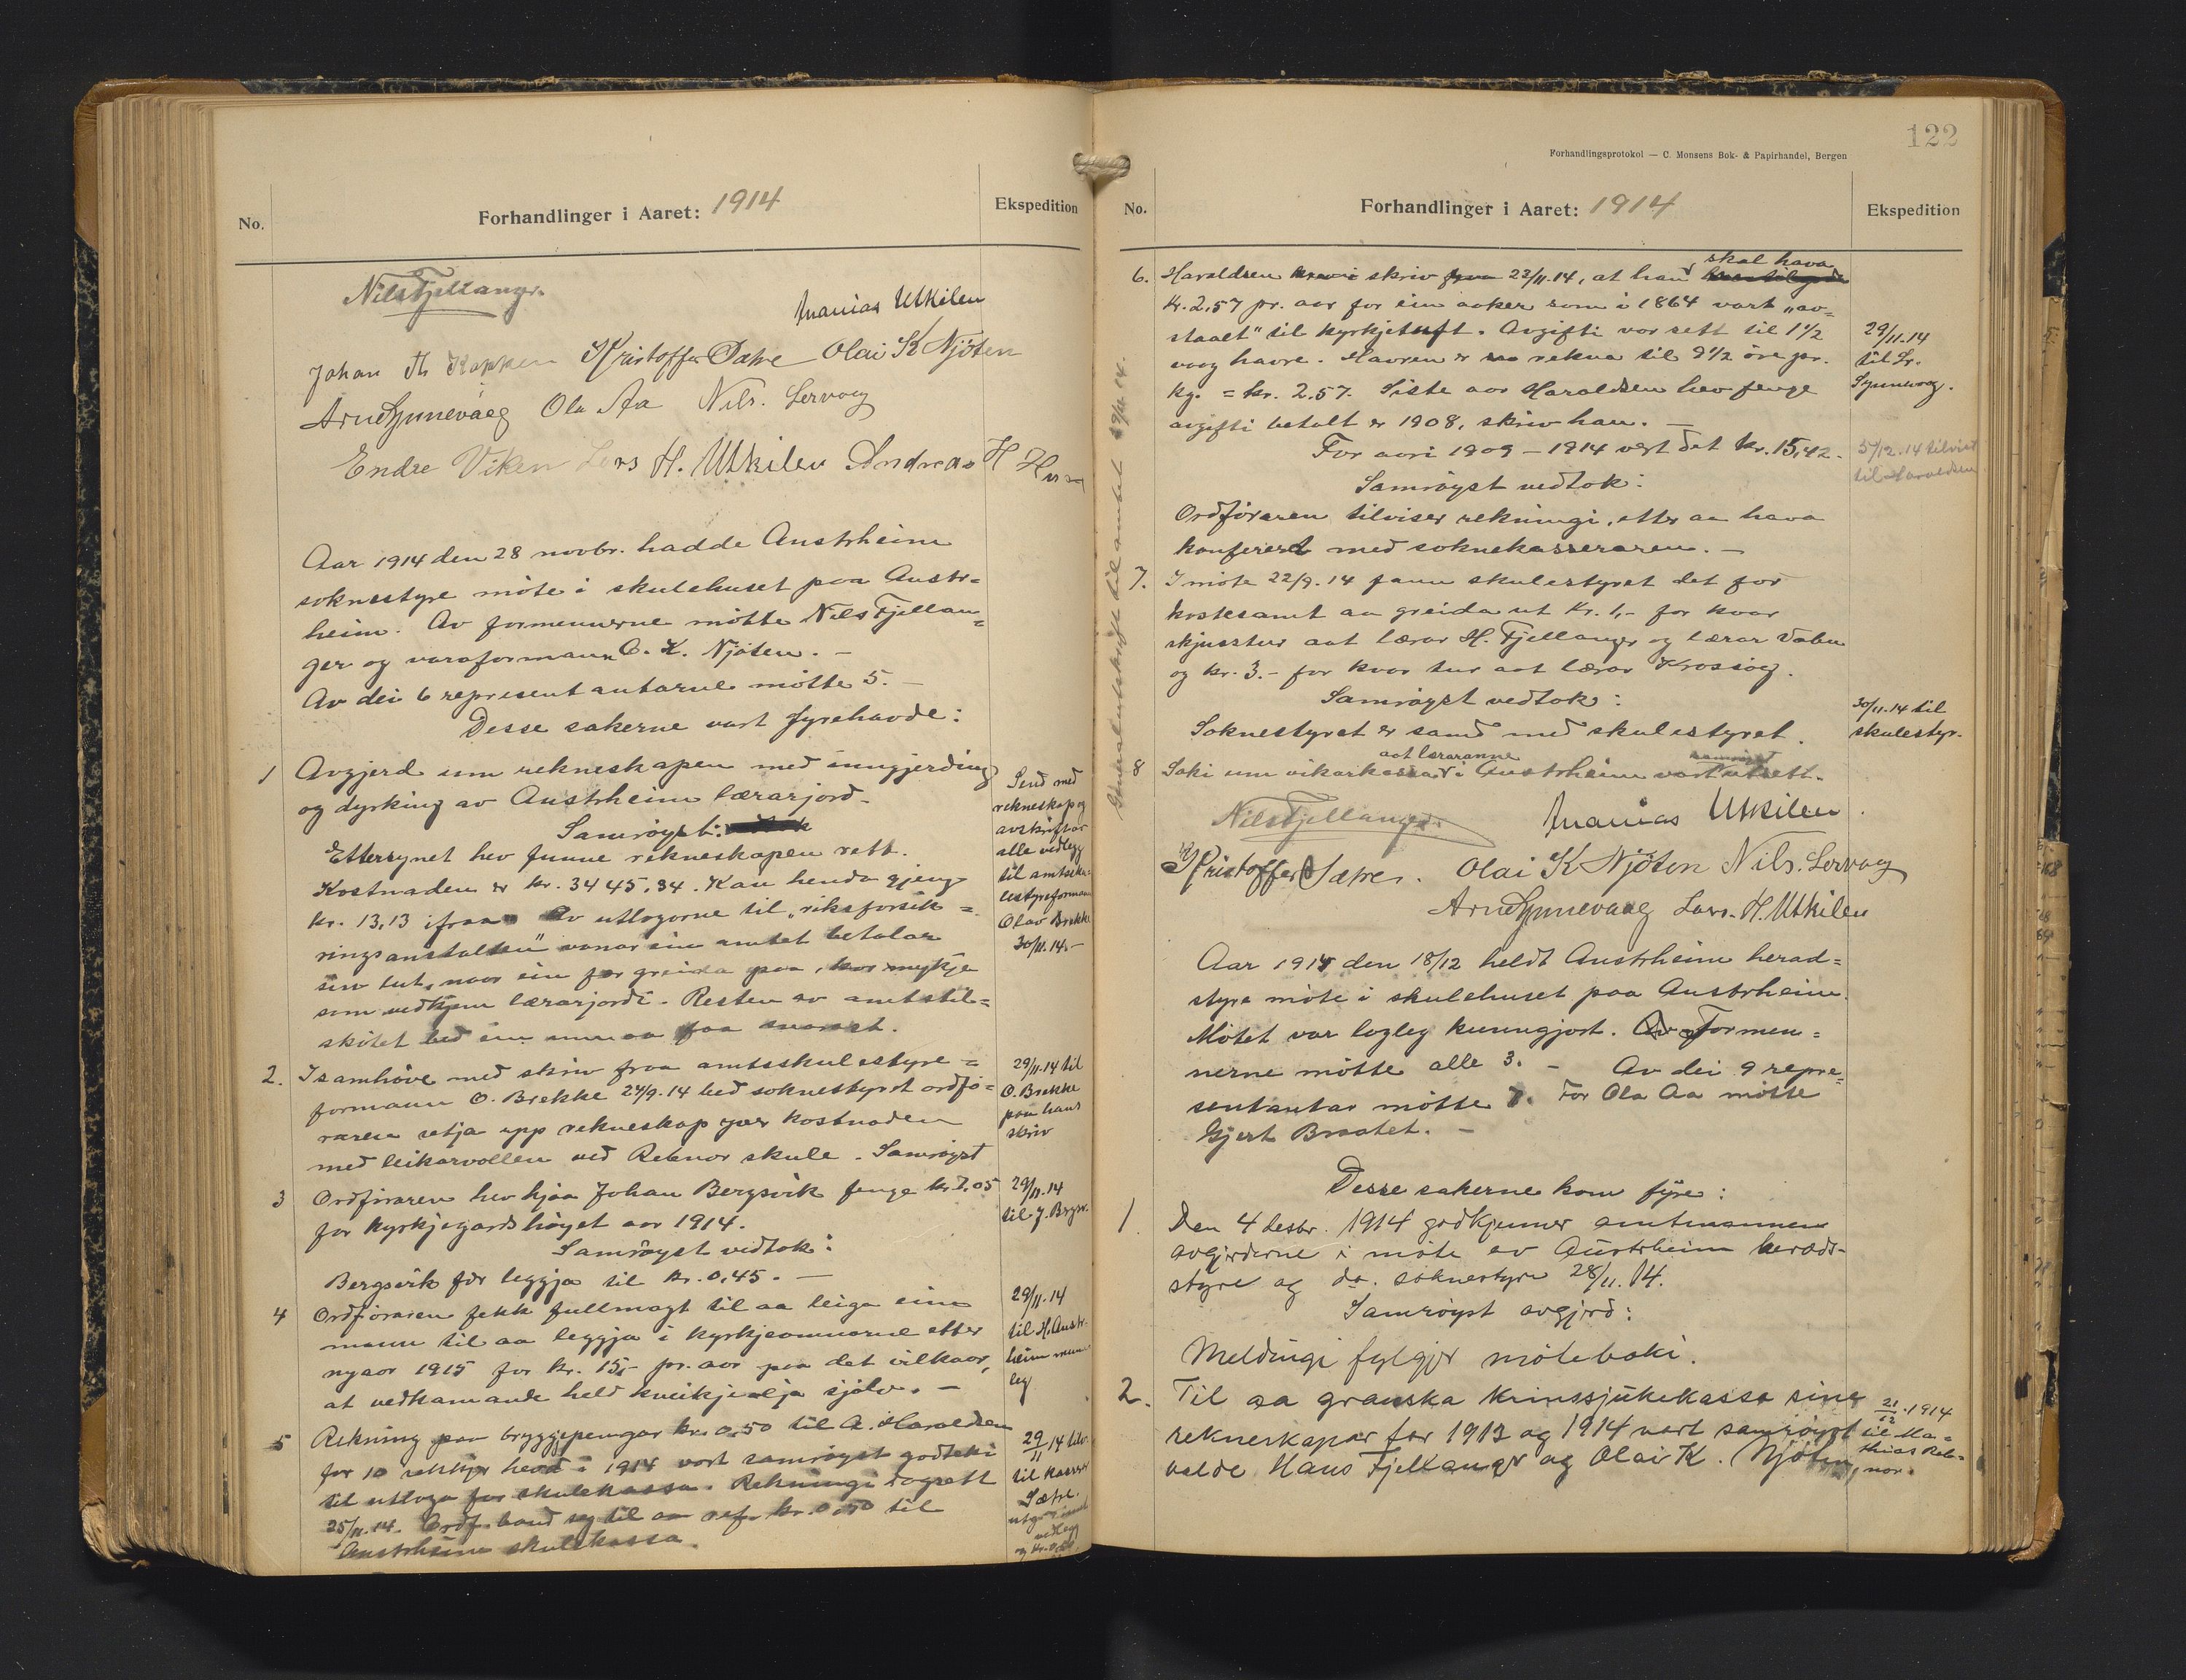 No.
Forhandlinger i Aaret: 1914
Ekspedition
Nils Fjellanger
Manias Utkilen
Johan Th Koppen Kristoffer Sætre Olai K Njøten
Arne Synnevaag Ola Aa Nils. Lervaag
Endre Viken Lars H. Utkilen Andreas H
Aar 1914 den 28 novbr. hadde Austrheim
soknestyre möte i skulehuset paa Austr=
heim. Av formennerne mötte Nils Fjellan=
ger og varaformann O. K. Njöten. –
Av dei 6 representantarne mötte 5. –
Desse sakerne vart fyrehavde:
1 Avgjerd um rekneskapen med inngjerding
og dyrking av Austrheim lærarjord.
Samröyst:
Ettersynet hev funne rekneskapen rett.
Kostnaden er kr. 3445,34. Kan henda gjeng
kr. 13,13 ifraa. Av utlogorne til „riksforsik=
ringsanstalten" vonar ein amtet betalar
sin lut, naar ein fær greida paa, kor mykje
som vedkjem lærarjordi. Resten av amtstil=
skotet bed ein um aa faa snarast.
Send med
rekneskap og
avskriftar
alle vedlegg
til amtssku-
lestyreformann
Olav Brekke
30/11.14. –
2. I samhöve med skriv fraa amtsskulestyre=
formann O. Brekke 24/9.14 bed soknestyret ordfö=
raren setja upp rekneskap yver kostnaden
med leikarvollen ved Rebnor skule. Samröyst
29/11.14 til
O. Brekke
paa hans
skriv
3 Ordföraren hev hjaa Johan Bergsvik fenge kr. 7.05
for kyrkjegardshöyet aar 1914.
Samröyst vedtok:
Bergsvik fær leggja til kr. 0,45. –
29/11.14
til J. Bergsv.
4 Ordföraren fekk fullmagt til aa leiga ein
mann til aa leggja i kyrkjeomnarne etter
nyaar 1915 for kr. 15,- pr. aar paa det vilkaar,
at vedkomande held kveikje sjölv. –
29/11.14
til H. Austr-
heim munn-
leg
5 Rekning paa bryggjepengar kr. 0,50 til A. Haraldsen
for 10 sekkjer i 1914 vart samröyst godteki
til utloga for skulekassa. Rekningi dagsett
25/11.14. Ordf. baud seg til aa ref. kr. 0,50 til
Austrheim skulekassa.
29/11 14 tilv.
til kasser
Sætre
vedlegg
122
Forhandlingsprotokol — C. Monsens Bok- & Papirhandel, Bergen
No.
Forhandlinger i Aaret: 1914
Ekspedition
6. Haraldsen skriv 22/11.14, at han skal hava
kr. 2,57 pr. aar for ein aaker som i 1864 vart „av=
staatt" til kyrkjetuft. Avgifti var sett til 1½
vaag havre. Havren er rekna til 9½ öre pr.
kg. = kr. 2,57. Siste aar Haraldsen hev fenge
avgifti betalt er 1908, skriv han. –
For aari 1909 – 1914 vert det kr. 15,42.
Samröyst vedtok:
Ordföraren tilviser rekningi, etter aa hava
konfereret med soknekasseraren. –
29/11.14
til Lr.
Synnevaag.
5/12.14 tilvist
til Haraldsen
7. I möte 22/9.14 fann skulestyret det for
kostesamt aa greida ut kr. 1,- for kvar
skjusstur aat lærar H. Fjellanger og lærar Vabø
og kr. 3.- for kvar tur aat lærar Krossöy.
Samröyst vedtok:
Soknestyret er samd med skulestyret.
30/11.14 til
skulestyr.
8 Saki um vikarkassa aat læraranne i Austrheim vart samröyst utsett.
Nils Fjellanger
Manias Utkilen
Kristoffer Sætre. Olai K Njöten Nils. Lervaag
Arne Synnevaag Lars. H. Utkilen
Aar 1914 den 18/12 heldt Austrheim herad=
styre möte i skulehuset paa Austrheim.
Mötet var logleg kunngjort. Av Formen=
nerne mötte alle 3. – Av dei 9 repre=
sentantar mötte 7. For Ola Aa mötte
Gjert Braatet. –
Desse sakerne kom fyre:
1. Den 4 desbr. 1914 godkjenner amtmannen
avgjerderne i möte av Austrheim herads-
styre og do. soknestyre 28/11.14.
Samröyst avgjerd:
Meldingi fylgjer möteboki.
2. Til aa granska krinssjukekassa sine
rekneskapar for 1913 og 1914 vart samröyst
valde Hans Fjellanger og Olai K. Njöten,
21/12.1914
til Ma=
thias Reb=
nor.